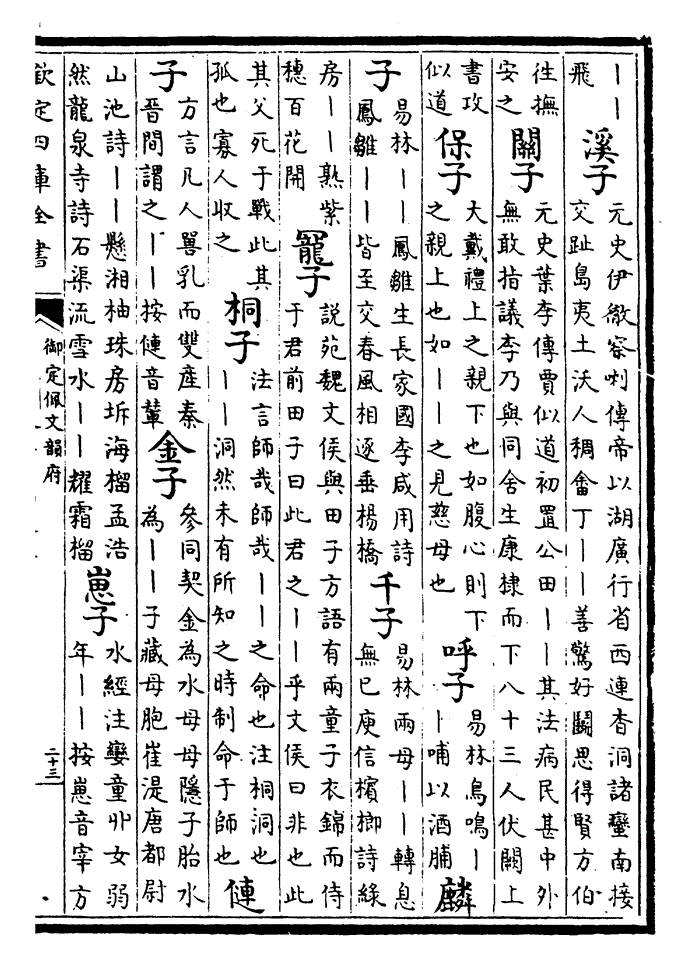 ｜｜
飛
溪子
元史伊徹察喇傳帝以湖廣行省西連杳洞諸蠻南接
交趾島夷土沃人稠畬丁｜｜善驚好鬭思得賢方伯
往撫
安之
關子
元史葉李傳賈似道初置公田｜｜其法病民甚中外
無敢指議李乃與同舍生康棣而下八十三人伏闕上
書攻
似道
保子
大戴禮上之親下也如腹心則下
之親上也如｜｜之見慈母也
呼子
易林烏鳴｜
｜哺以酒脯
麟
子
易林｜｜鳳雛生長家國李咸用詩
鳳雛｜｜皆至交春風相逐垂楊橋
千子
易林兩母｜｜轉息
無已庾信檳榔詩綠
房｜｜熟紫
穗百花開
寵子
說苑魏文侯與田子方語有兩童子衣錦而侍
于君前田子曰此君之｜｜乎文侯曰非也此
其父死于戰此其
孤也寡人收之
桐子
法言師哉師哉｜｜之命也注桐洞也
｜｜洞然未有所知之時制命于師也
僆
子
方言凡人嘼乳而雙產秦
晉間謂之｜｜按僆音輦
金子
參同契金為水母母隱子胎水
為｜｜子藏母胞崔湜唐都尉
山池詩｜｜懸湘柚珠房坼海榴孟浩
然龍泉寺詩石渠流雪水｜｜耀霜榴
崽子
水經注孌童丱女弱
年｜｜按崽音宰方
欽定四庫全書
御定佩文韻府
二十三